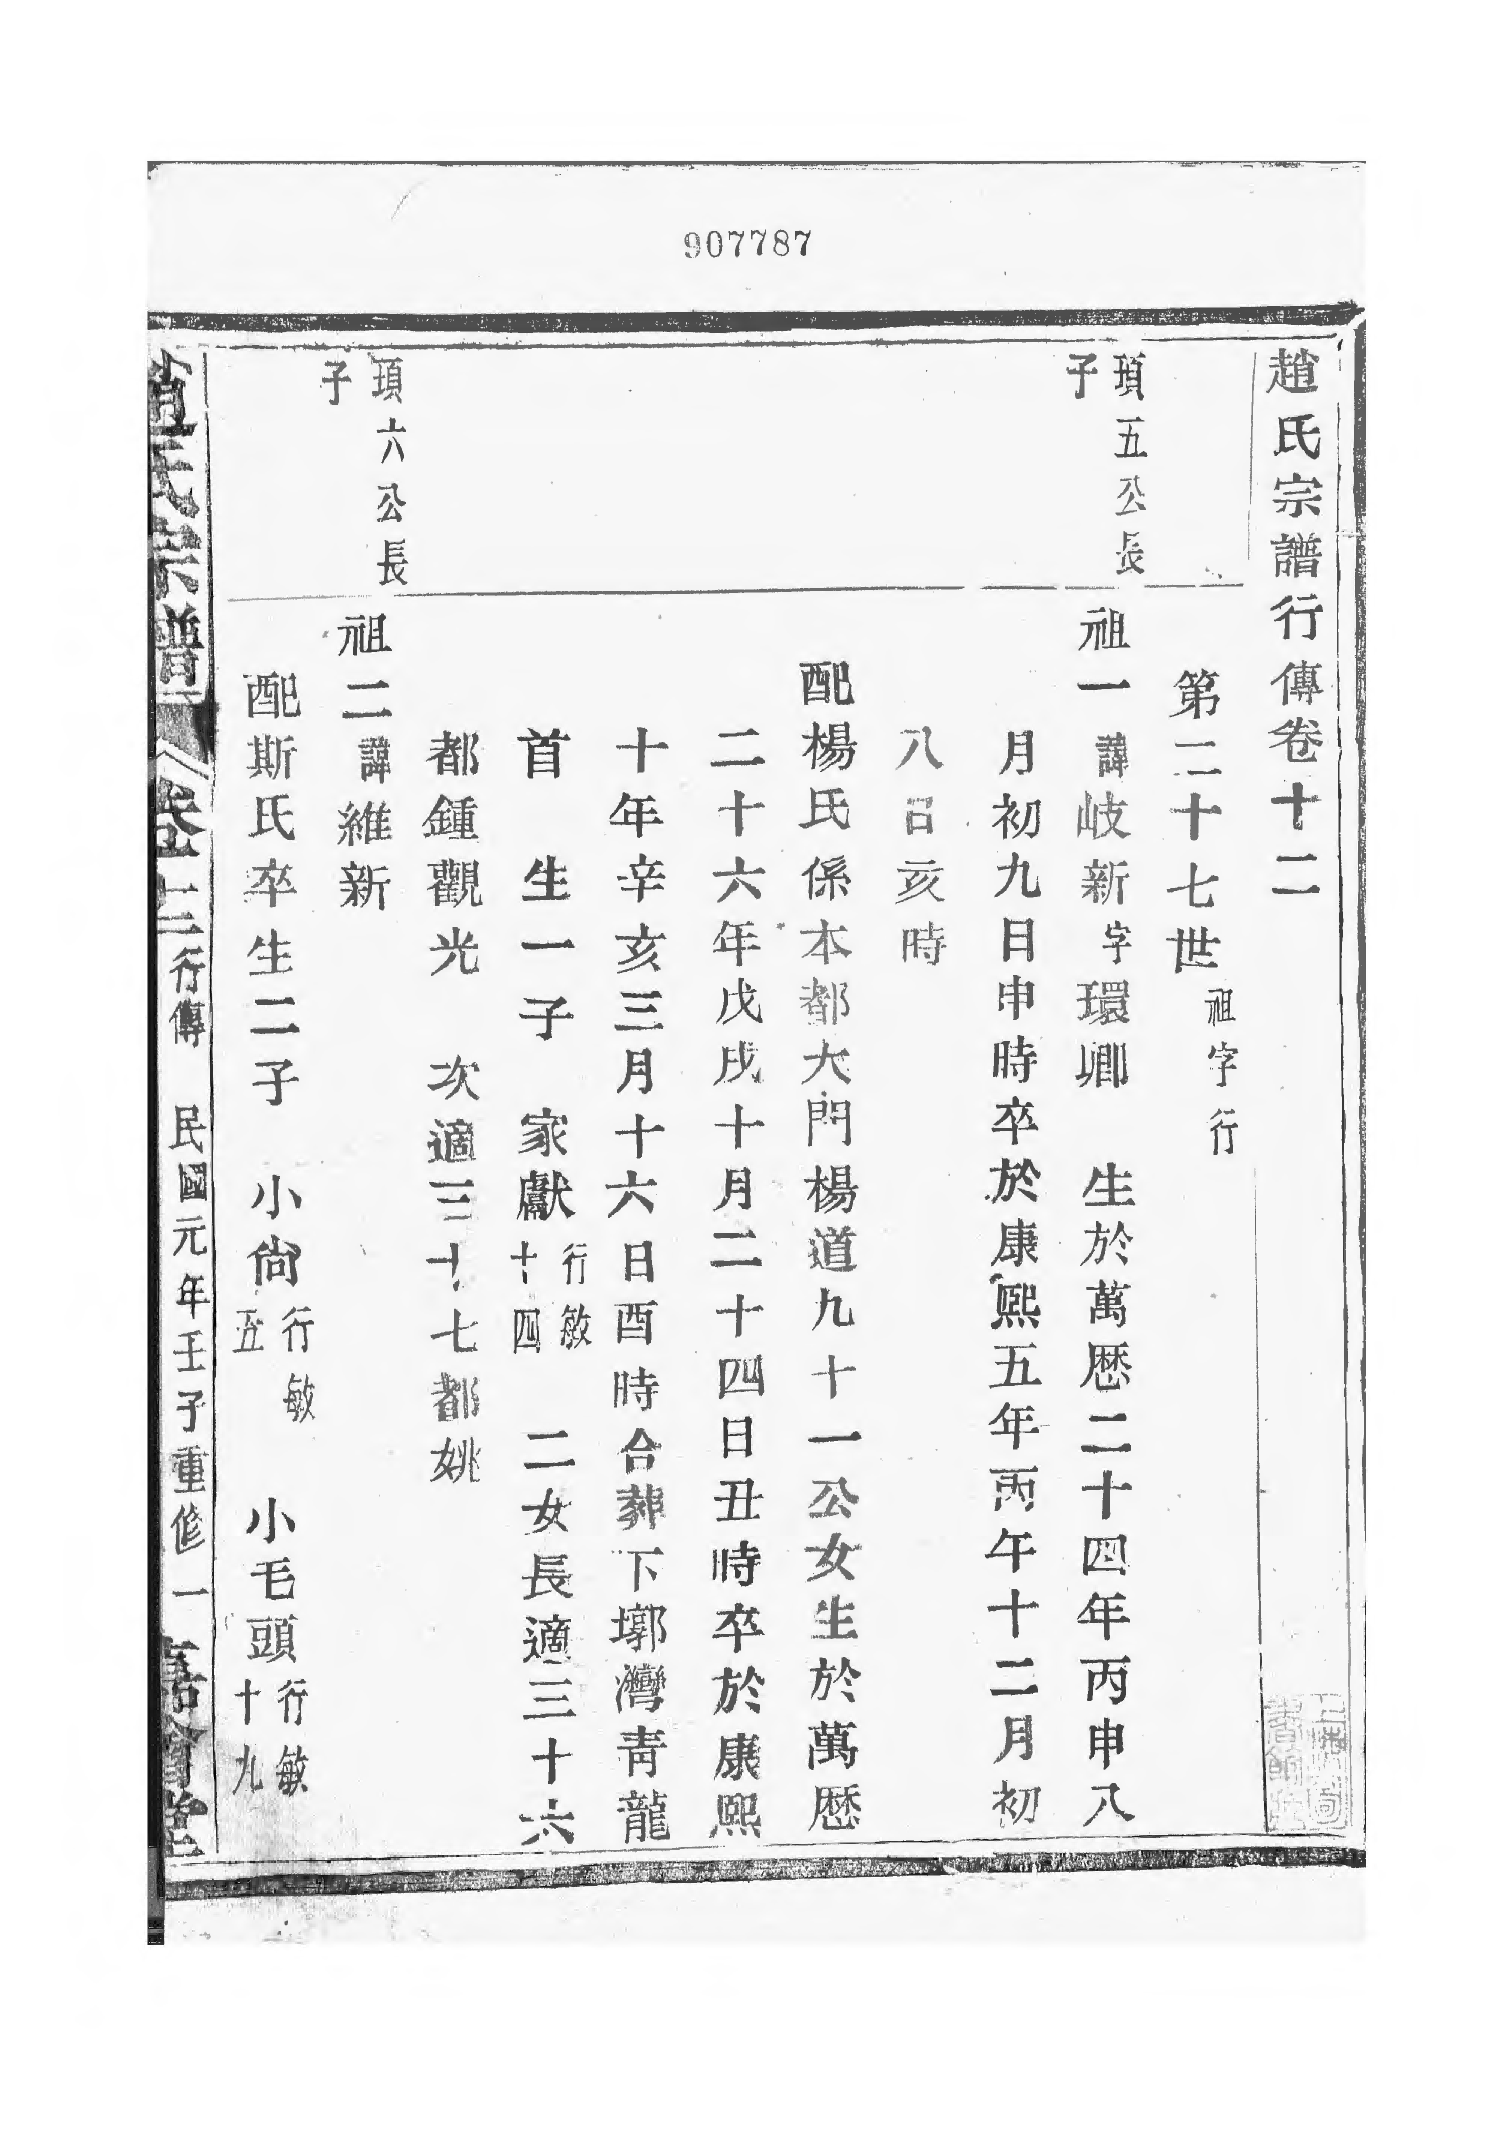 907787
趙氏宗譜行傳卷十二
第二十七世祖字行
瑣五公長
子
祖一諱歧新字環卿 生於萬歷二十四年丙申八
月初九日申時卒於康熙五年丙午十二月初
八日亥時
配楊氏係本都大門楊道九十一公女生於萬歷
二十六年戊戌十月二十四日丑時卒於康熙
十年辛亥三月十六日酉時合葬下墎灣青龍
首 生一子 家獻行敏十四 二女長適三十六
都鍾觀光 次適三十七都姚
瑣六公長
子
祖二諱維新
配斯氏卒生二子 小尙行敏五 小毛頭行敏十九
趙氏宗譜 卷十二 行傳 民國元年壬子重修 一 嘉會堂